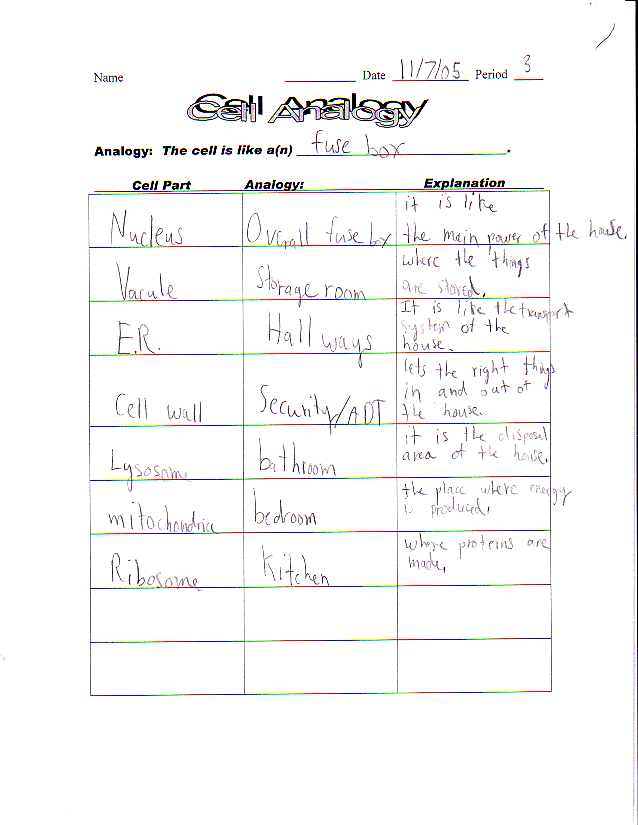 Name Date 11/7/05 Period 3
Cell Analogy
Analogy: The cell is like a(n) fuse box.
Cell Part Analogy: Explanation
Nucleus
Overall fuse box
it is like
the main power of the house.
Vacule
Storage room
where the things
are stored.
E.R.
Hall ways
It is like the transport
system of the
house.
Cell wall
Security/ADT
lets the right things
in and out of
the house.
Lysosome
bathroom
it is the disposal
area of the house.
mitochondria
bedroom
the place where energy
is produced.
Ribosome
Kitchen
where proteins are
made.